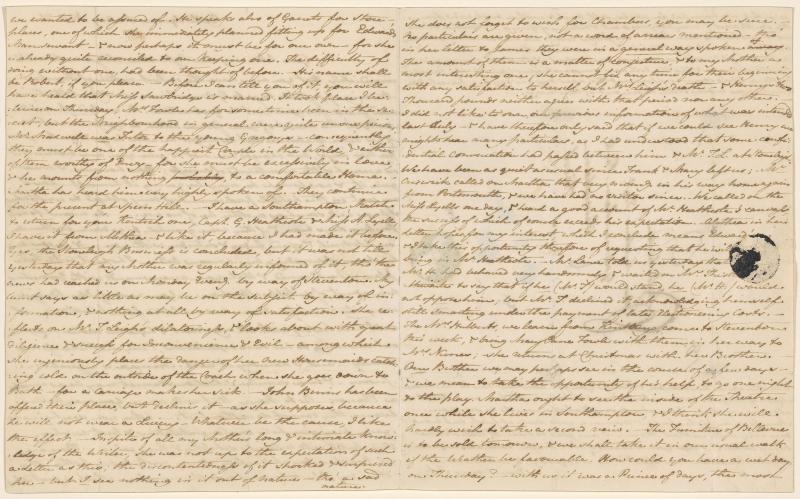 we wanted to be assured of. He speaks also of Garrets for Store-
places, one of which she immediately planned fitting up for Edward's
Manservant - & now perhaps it must be for our own - for she
is already quite reconciled to our keeping one. The difficulty of
doing without one, had been thought of before. His name shall
be Robert, if you please. - Before I can tell you of it, you will
have heard that Miss Sawbridge is married. It took place I be-
lieve on Thursday, Mrs Fowle has for some time been in the se-
cret, but the Neighbourhood in general were quite unsuspicious.
Mr Maxwell was Tutor to the young Gregorys - consequently
they must be one of the happiest Couple in the World, & either
of them worthy of Envy - for she must be excessively in love,
& he mounts from nothing, to a comfortable Home. -
Martha has heard him very highly spoken of. They continue
for the present at Speen Hill. - I have a Southampton Match
to return for your Kentish one, Capt. G. Heathcote & Miss A. Lyell;
I have it from Alethea - & like it, because I had made it before.
Yes, the Stoneleigh Business is concluded, but it was not till
yesterday that my Mother was regularly informed of it, tho' the
news had reached us on Monday Eveng by way of Steventon. My
Aunt says as little as may be on the subject by way of in-
formation, & nothing at all by way of satisfaction. She re-
flects on Mr T. Leigh's dilatoriness, & looks about with great
diligence & success for Inconvenience & Evil - among which
she ingeniously places the danger of her new Housemaids catch-
ing cold on the outside of the Coach, when she goes down to
Bath - for a carriage makes her sick. - John Binns has been
offered their place, but declines it - as she supposes, because
he will not wear a Livery. Whatever be the cause, I like
the effect. - In spite of all my Mother's long & intimate know-
ledge of the Writer, she was not up to the expectation of such
a Letter as this; the discontentedness of it shocked & surprised
her - but I see nothing in it out of Nature - tho' a sad
nature.
She does not forget to wish for Chambers, you may be sure. -
No particulars are given, not a word of arrears mentioned - tho'
in her letter to James they were in a general way spoken of.
The amount of them is a matter of conjecture, & to my Mother a
most interesting one; she cannot fix any time for their beginning
with any satisfaction to herself, but Mrs Leigh's death - & Henry's two
Thousand pounds neither agrees with that period nor any other. -
I did not like to own, our previous information of what was intended
last July - & have therefore only said that if we could see Henry we
might hear many particulars, as I had understood that some confi-
dential conversation had passed between him & Mr T. L. at Stoneleigh.
We have been as quiet as usual since Frank & Mary left us; - Mr
Criswick called on Martha that very morng in his way home again
from Portsmouth, & we have had no visitor since. - We called on the
Miss Lyells one day, & heard a good account of Mr Heathcote's canvass,
the success of which of course exceeds his expectation. - Alethea in her
letter hopes for my interest, which I conclude means Edward's
& I take this opportunity therefore of requesting that he will
bring in Mr Heathcote. - Mr Lance told us yesterday that
Mr H. had behaved very handsomely & waited on Mr Thistle-
thwaite to say that if he (Mr T.) would stand, he (Mr H.) would
not oppose him; but Mr T. declined it, acknowledging himself
still smarting under the payment of late Electioneering costs. -
The Mrs Hulberts, we learn from Kintbury, come to Steventon
this week, & bring Mary Jane Fowle with them, in her way to
Mrs Nunes; she returns at Christmas with her Brother. -
Our Brother we may perhaps see in the course of a few days -
& we mean to take the opportunity of his help, to go one night
to the play. Martha ought to see the inside of the Theatre
once while she lives in Southampton, & I think she will
hardly wish to take a second veiw. - The Furniture of Bellevue
is to be sold tomorrow, & we shall take it in our usual walk
if the Weather be favourable. How could you have a wet day
on Thursday? - with us it was a Prince of days, the most